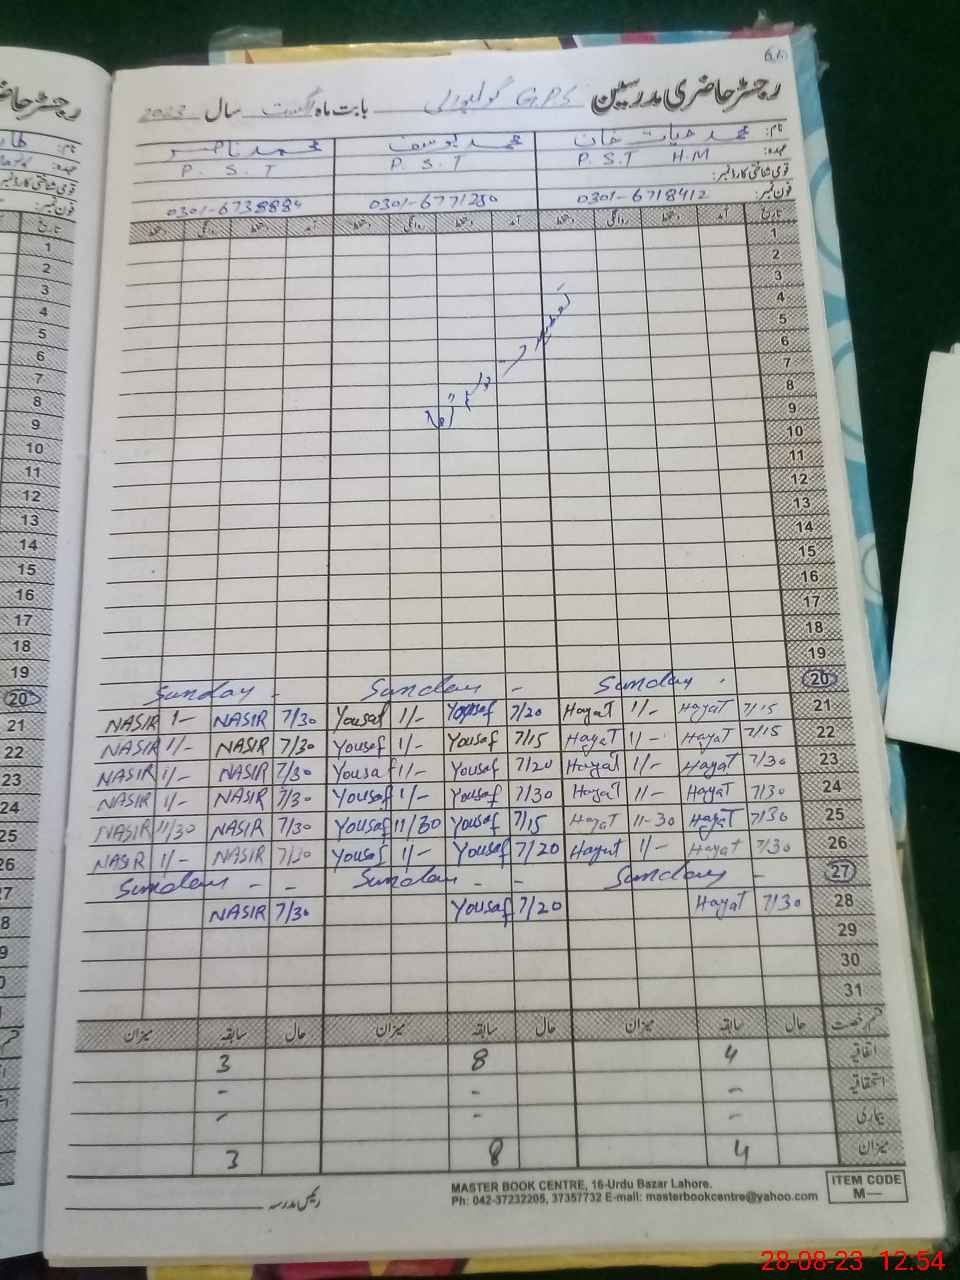 رجسٹر حاضری مدرسین GPS بابت ماہ اگست سال 2023
نام: محمد حیات خان محمد یوسف محمد ناصر
عہدہ: P.S.T H.M P.S.T P.S.T
قومی شناختی کارڈ نمبر:
فون نمبر: 0301-6718412 0301-6771280 0301-6738884
تاریخ آمد دستخط روانگی دستخط آمد دستخط روانگی دستخط آمد دستخط روانگی دستخط
1
2
3
4
5
6
7
8
9
10
11
12
13
14
15
16
17
18
19
Sunday - Sunday - Sunday . 20
NASIR 1- NASIR 7/30 Yousaf 1/- Yousaf 7/20 Hayat 1/- Hayat 7/15 21
NASIR 1/- NASIR 7/30 Yousaf 1/- Yousaf 7/15 Hayat 1/- Hayat 7/15 22
NASIR 1/- NASIR 7/30 Yousaf 1/- Yousaf 7/20 Hayat 1/- Hayat 7/30 23
NASIR 1/- NASIR 7/30 Yousaf 1/- Yousaf 7/30 Hayat 1/- Hayat 7/30 24
NASIR 11/30 NASIR 7/30 Yousaf 11/30 Yousaf 7/15 Hayat 11-30 Hayat 7/30 25
NASIR 1/- NASIR 7/30 Yousaf 1/- Yousaf 7/20 Hayat 1/- Hayat 7/30 26
Sunday - - Sunday - - Sunday - 27
NASIR 7/30 Yousaf 7/20 Hayat 7/30 28
29
30
31
قسم رخصت حال سابقہ میزان حال سابقہ میزان حال سابقہ میزان
اتفاقیہ 4 8 3
استحقاقیہ - - -
بیماری - - -
میزان 4 8 3
رئیس مدرسہ
MASTER BOOK CENTRE, 16-Urdu Bazar Lahore.
Ph: 042-37232205, 37357732 E-mail: masterbookcentre@yahoo.com
ITEM CODE
M—
28-08-23 12:54